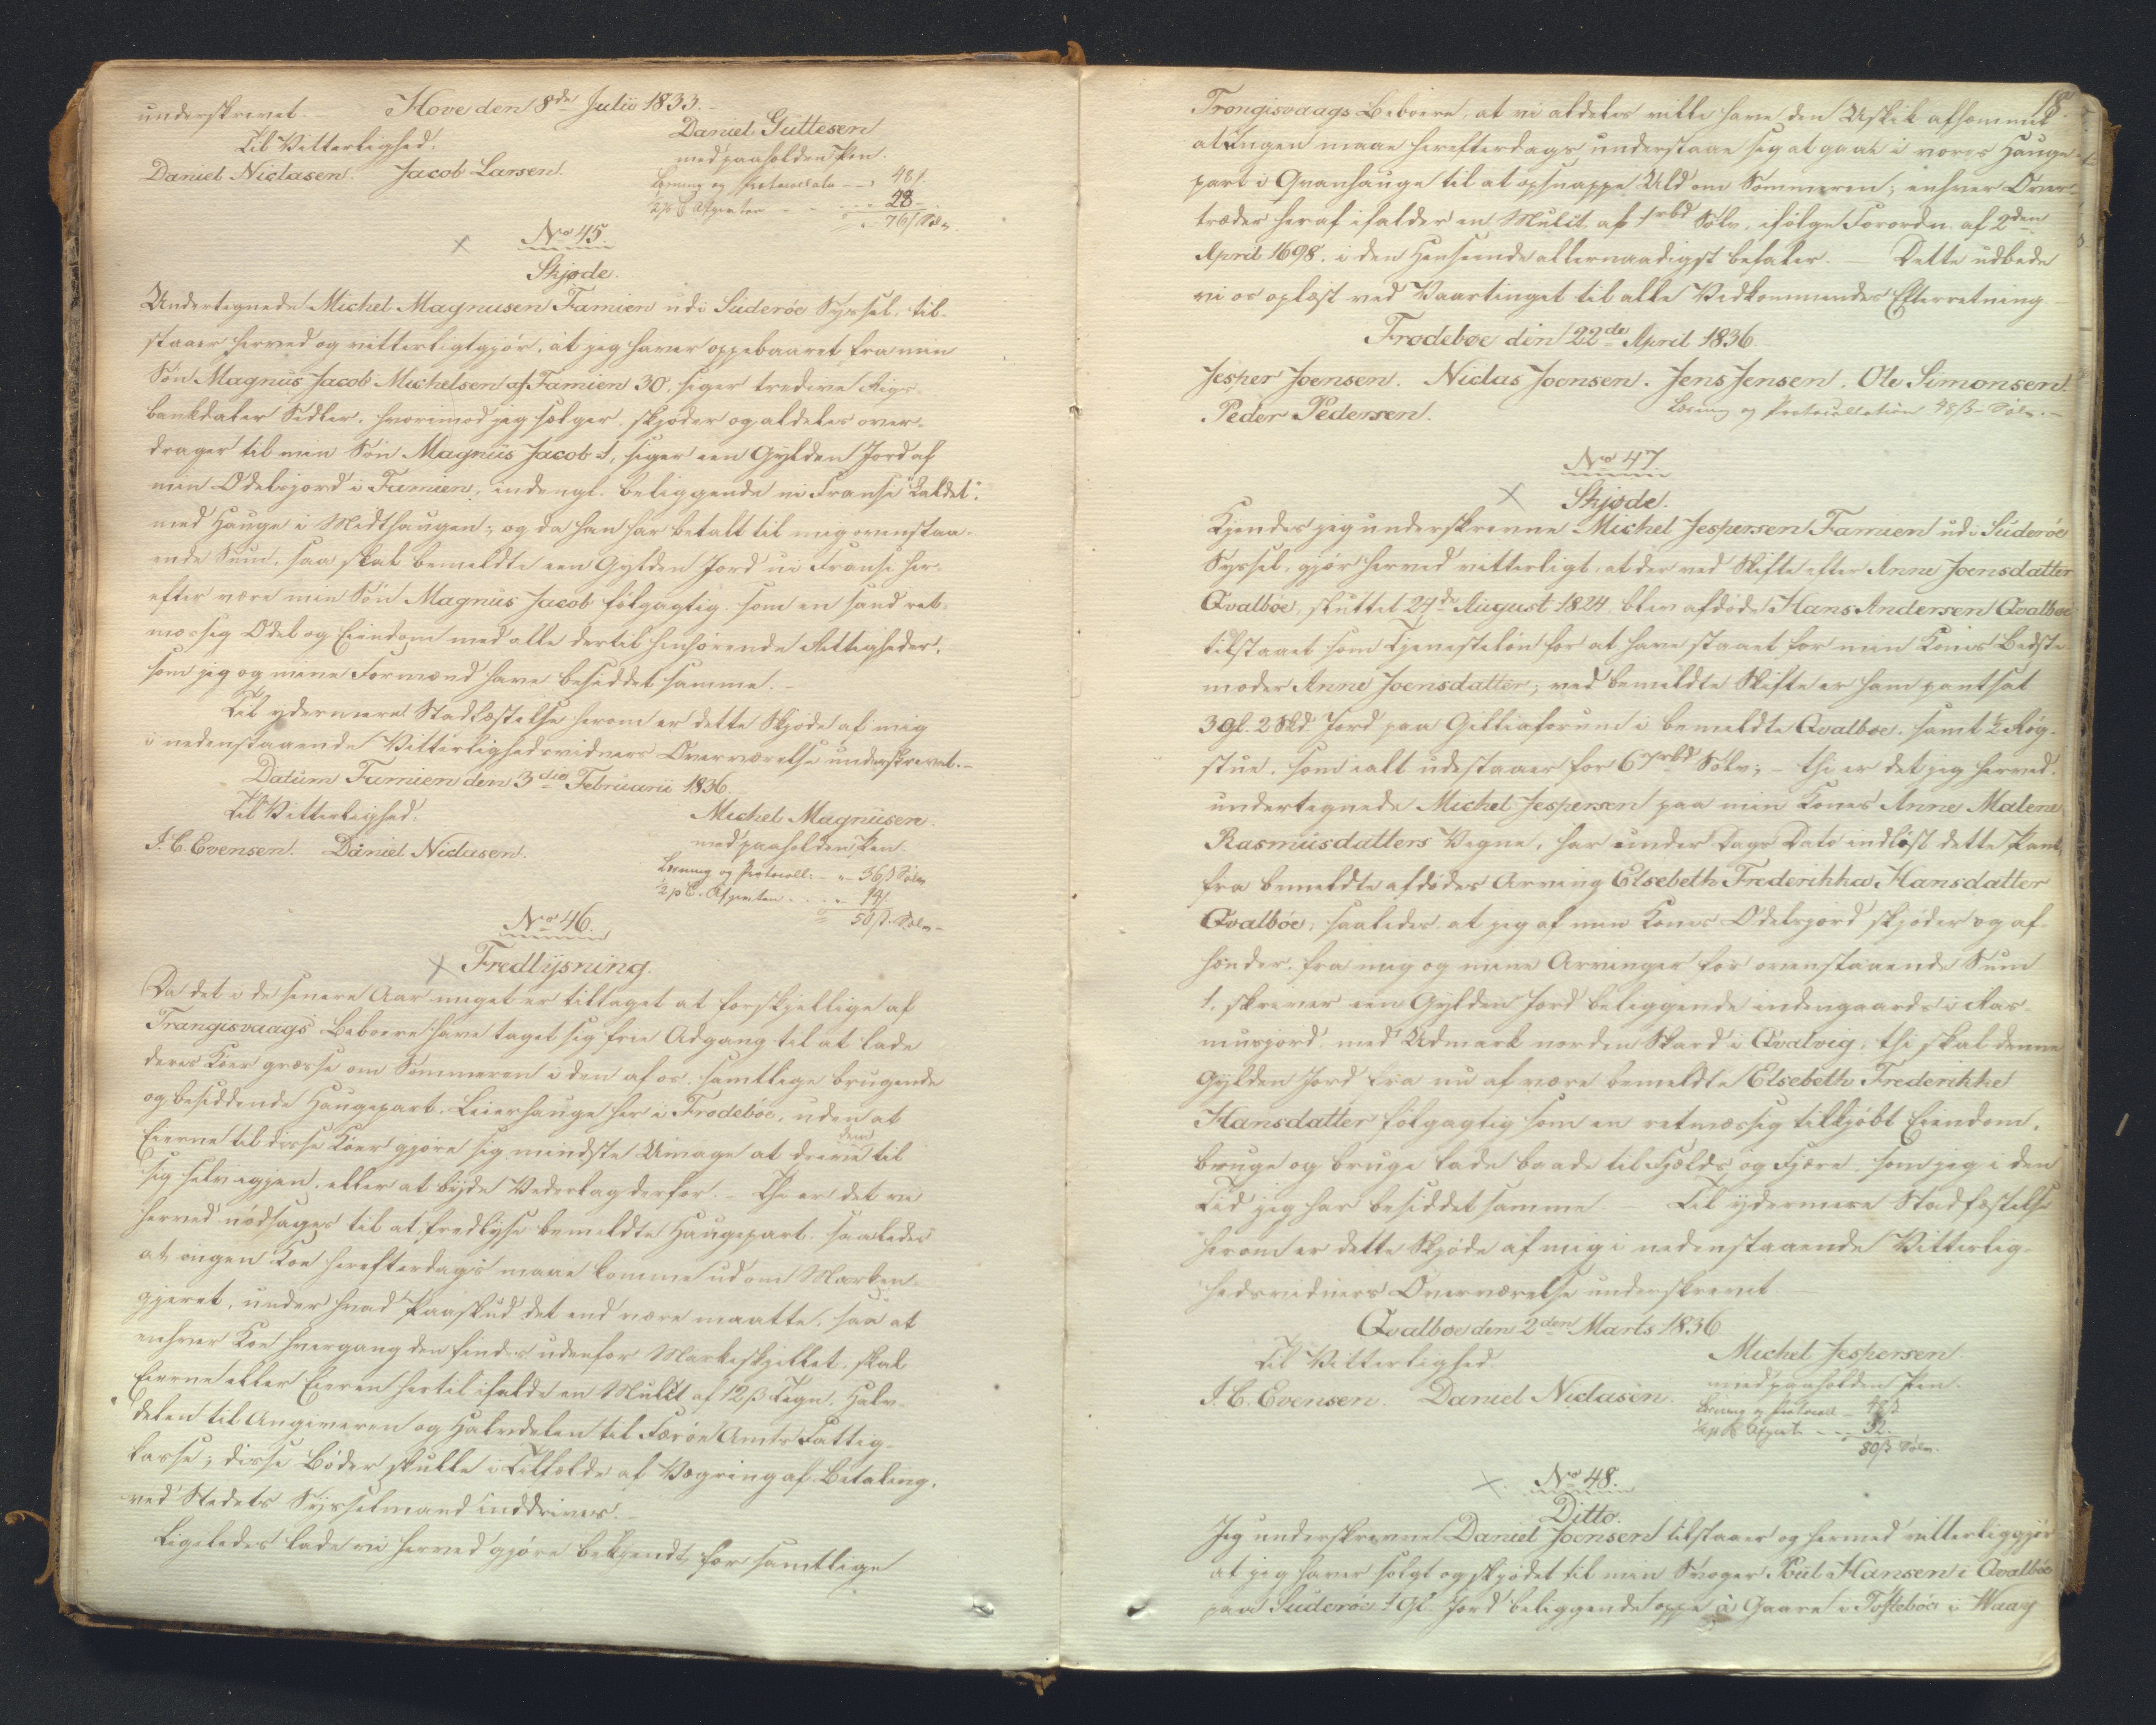 underskrevet. – Hove den 8de Julii 1833. –
Til Vitterlighed. Daniel Guttesen
med paaholden Pen.
Daniel Niclasen. Jacob Larsen.
Læsning og Protocollato – – 48 ß.
½ p C Afgivten – – – 28 –
76 ß Sølv.
No 45.
Skjøde.
Undertegnede Michel Magnusen Famien udi Suderøe Syssel, til-
staaer herved og vitterligtgjør, at jeg haver oppebaaret fra min
Søn Magnus Jacob Michelsen af Famien 30, siger tredive Rigs-
bankdaler Sedler, hvorimod jeg sælger, skjøder og aldeles over-
drager til min Søn Magnus Jacob 1, siger een Gylden Jord af
min Odelsjord i Famien, indengl. beliggende ni Fransi "Kaldet",
med Hauge i Midthaugen; og da han har betalt til mig ovenstaa-
ende Sum, saa skal bemeldte een Gylden Jord ni Fransi her-
efter være min Søn Magnus Jacob følgagtig som en sand ret-
mæssig Odel og Eiendom med alle dertil henhørende Rettigheder,
som jeg og mine Formænd have besiddet samme. –
Til ydermere Stadfæstelse herom er dette Skjøde af mig
i nedenstaaende Vitterlighedsvidners Overværelse underskrevet. –
Datum Famien den 3die Februarii 1836.
Til Vitterlighed. Michel Magnusen.
med paaholden Pen.
J. C. Evensen. Daniel Niclasen.
Læsning og Protocoll: – „ 36 ß Sølv
½ p C. Afgivten . . . „ 14 ß.
50 ß. Sølv –
No 46.
Fredlysning.
Da det i de senere Aar meget er tiltaget at forskjellige af
Trangisvaags Beboere have taget sig frie Adgang til at lade
deres Køer græsse om Sommeren i den af os samtlige brugende
og besiddende Haugepart, Leierhauge her i Frodebøe, uden at
Eierne til disse Køer gjøre sig mindste Umage at drive dem til
sig selv igjen, eller at byde Vederlag derfor. – Thi er det vi
herved nødsages til at fredlyse bemeldte Haugepart saaledes
at ingen Koe herefterdags maae komme ud om Marken-
gjeret, under hvad Paaskud det end være maatte, saa at
enhver Koe hvergang den findes udenfor Markeskjellet, skal
Eierne eller Eieren hertil ifalde en Mulct af 12 ß Tegn, Halv-
delen til Angiveren og Halvdelen til Færøe Amts Fattig-
kasse; disse Bøder skulle i Tilfælde af Vægring af Betaling,
ved Stedets Sysselmand inddrives. –
Ligeledes lade vi herved gjøre bekjendt for samtlige
18.
Trongisvaags Beboere, at vi aldeles ville have den Uskik afsommet
at Ingen maae herefterdags understaae sig at gaae i vores Hauge-
part i Qvanhauge til at opsnappe Uld om Sommeren; enhver Over-
træder heraf ifalder en Mulct af 1 rbd Sølv, ifølge Forordn. af 2den
April 1698, i den Henseende allernaadigst befaler. – Dette udbede
vi os oplæst ved Vaartinget til alle Vedkommendes Efterretning. –
Frodebøe den 22de April 1836
Jesper Joensen. Niclas Joensen. Jens Jensen. Ole Simonsen.
Peder Pedersen. Læsning og Protocollation 48 ß Sølv. –
No 47.
Skjøde.
Kjendes jeg underskrevne Michel Jespersen Famien udi Suderøe
Syssel, gjør herved vitterligt, at der ved Skifte efter Anne Joensdatter
Qvalbøe, sluttet 27de August 1824, blev afdøde Hans Andersen Qvalbøe
tilstaaet som Tjenesteløn for at have staaet for min Kones Bedste-
moder Anne Joensdatter; ved bemeldte Skifte er ham pantsat
3 Gl. 2 Skd Jord paa Gilliaforum i bemeldte Qvalbøe, samt ½ Røg-
stue, som ialt udestaaer for 67 rbd Sølv; – thi er det jeg herved
undertegnede Michel Jespersen paa min Kones Anne Malene
Rasmusdatters Vegne, har under Dags Dato indløst dette Pant,
fra bemeldte afdødes Arving Elsebeth Frederikka Hansdatter
Qvalbøe, saaledes, at jeg af min Kones Odelsjord skjøder og af-
hænder, fra mig og mine Arvinger for ovenstaaende Sum
1, skriver een Gylden Jord beliggende indengaards i Ras-
musjord, med Udmark norden Skard i Qvalvig, thi skal denne
Gylden Jord fra nu af være bemeldte Elsebeth Frederikke
Hansdatter følgagtig som en retmæssig tilkjøbt Eiendom,
bruge og bruge lade baade til Fjælds og Fjære, som jeg i den
Tid jeg har besiddet samme. – Til ydermere Stadfæstelse
herom er dette Skjøde af mig i nedenstaaende Vitterlig-
hedsvidners Overværelse underskrevet
Qvalbøe den 2den Marts 1836
Til Vitterlighed. Michel Jespersen.
med paaholden Pen.
J. C. Evensen. Daniel Niclasen.
Læsning og Protocoll – 48 ß
½ p C Afgivt – – 32.
80 ß Sølv.
No 48.
Ditto.
Jeg underskrevne Daniel Joensen tilstaaer og hermed vitterliggjør
at jeg haver solgt og skjødet til min Svoger Poul Hansen i Qvalbøe
paa Suderøe 1 Gl. Jord beliggende oppe à Gaare i Toftebøe i Waag